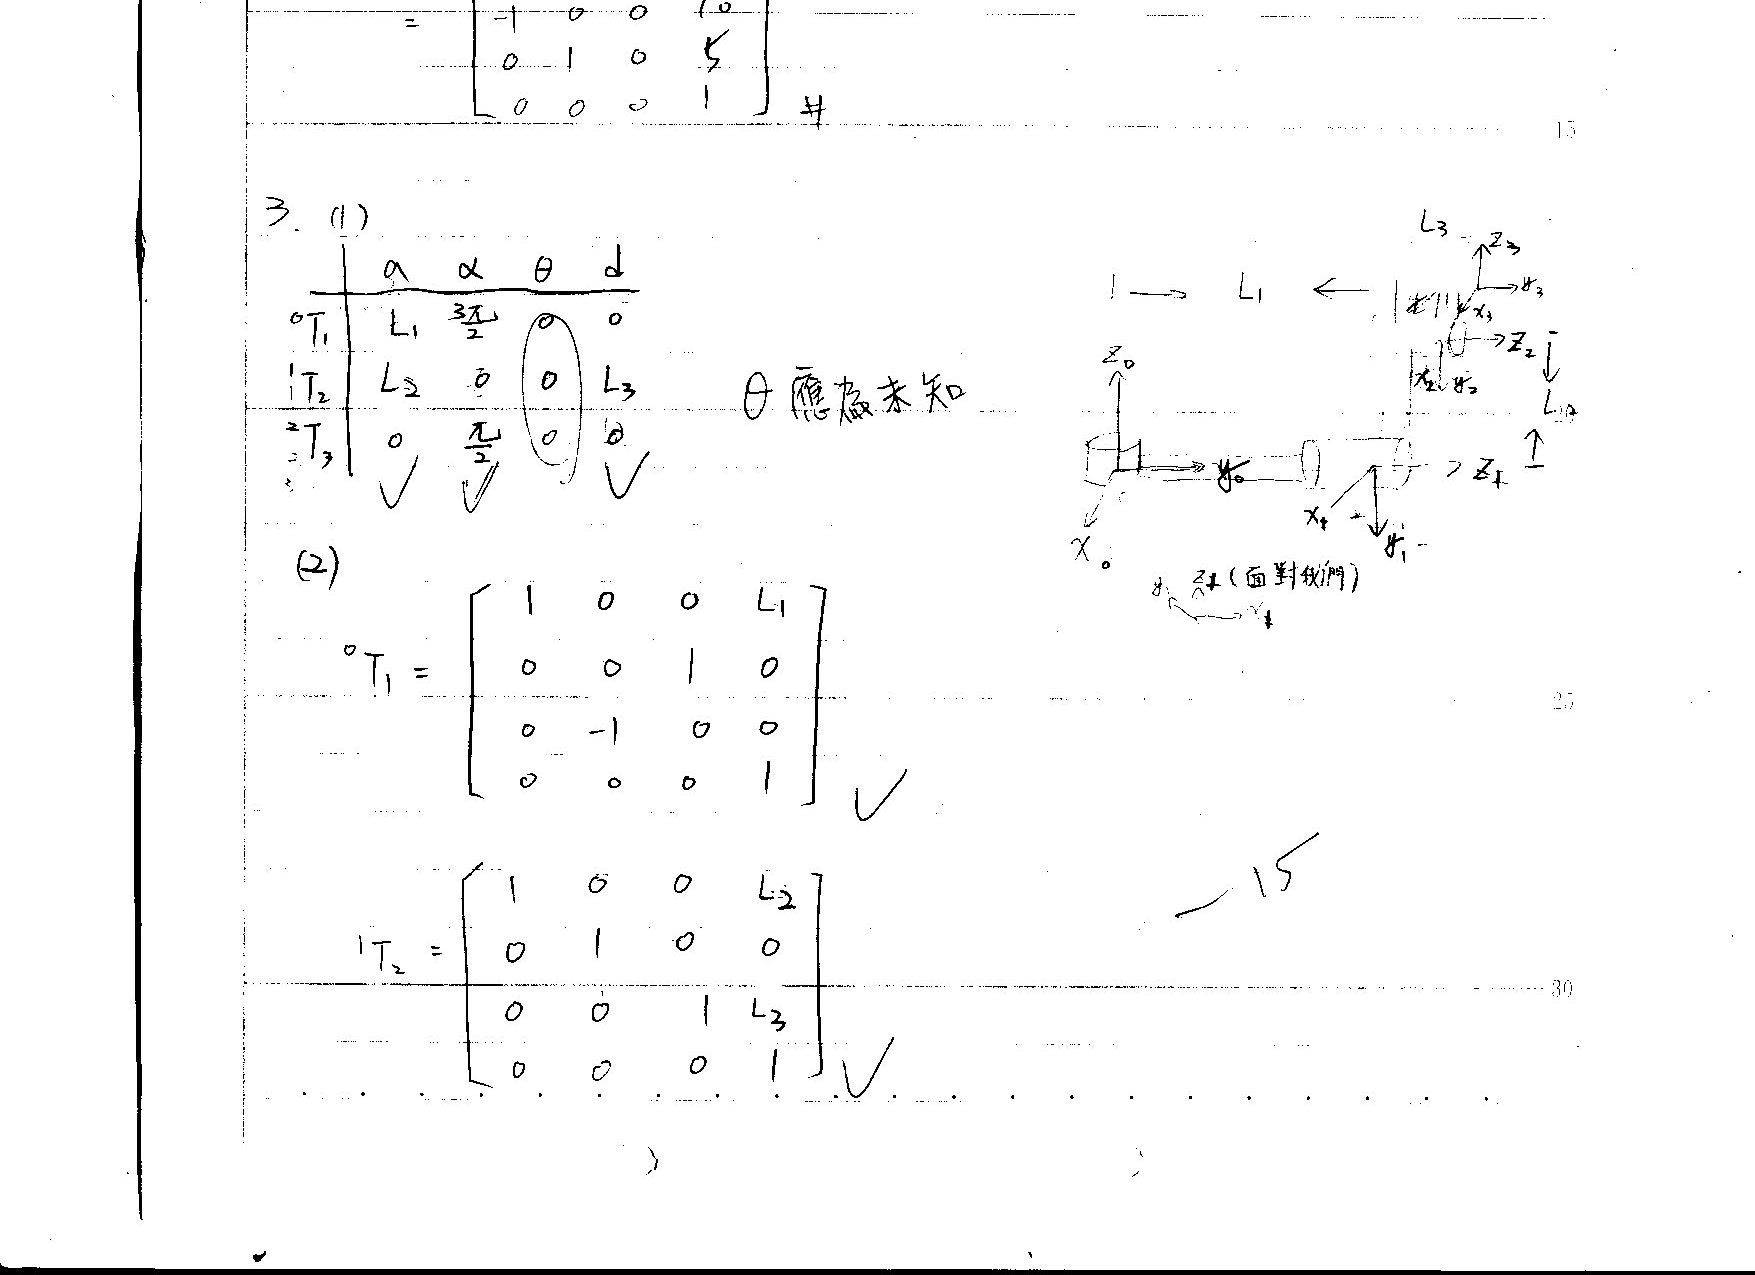 = -1 0 0 10
0 1 0 5
0 0 0 1 #
15
3. (1)
a α θ d
⁰T₁ L₁ 3π/2 0 0
¹T₂ L₂ 0 0 L₃
²T₃ 0 π/2 0 0
θ 應為未知
L₃ z₃
| → L₁ ← | y₃
x₃
z₂
z₀ x₂ y₂
y₀ z₁
x₁
x₀ y₁
z₁ (面對我們)
(2)
1 0 0 L₁
⁰T₁ = 0 0 1 0
0 -1 0 0
0 0 0 1
25
1 0 0 L₂
¹T₂ = 0 1 0 0
0 0 1 L₃
0 0 0 1
-15
30